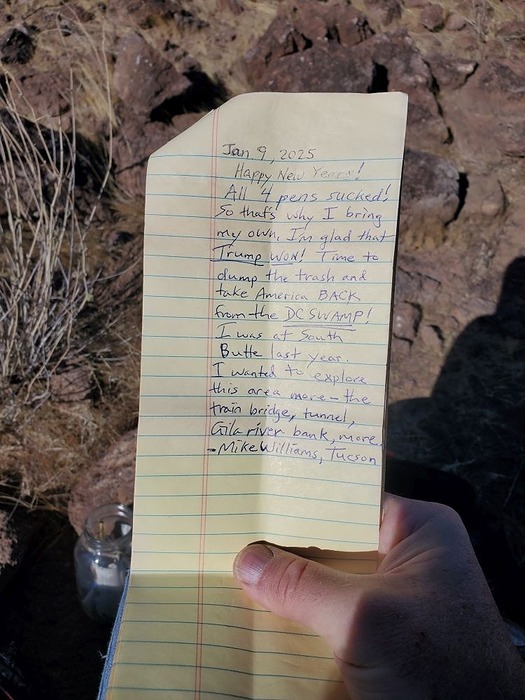 Jan 9, 2025
Happy New Years!
All 4 pens sucked!
So thats why I bring
my own. I'm glad that
Trump WON! Time to
dump the trash and
take America BACK
from the DC SWAMP!
I was at South
Butte last year.
I wanted to explore
this area more - the
train bridge, tunnel,
Gila river bank, more.
- Mike Williams, Tucson